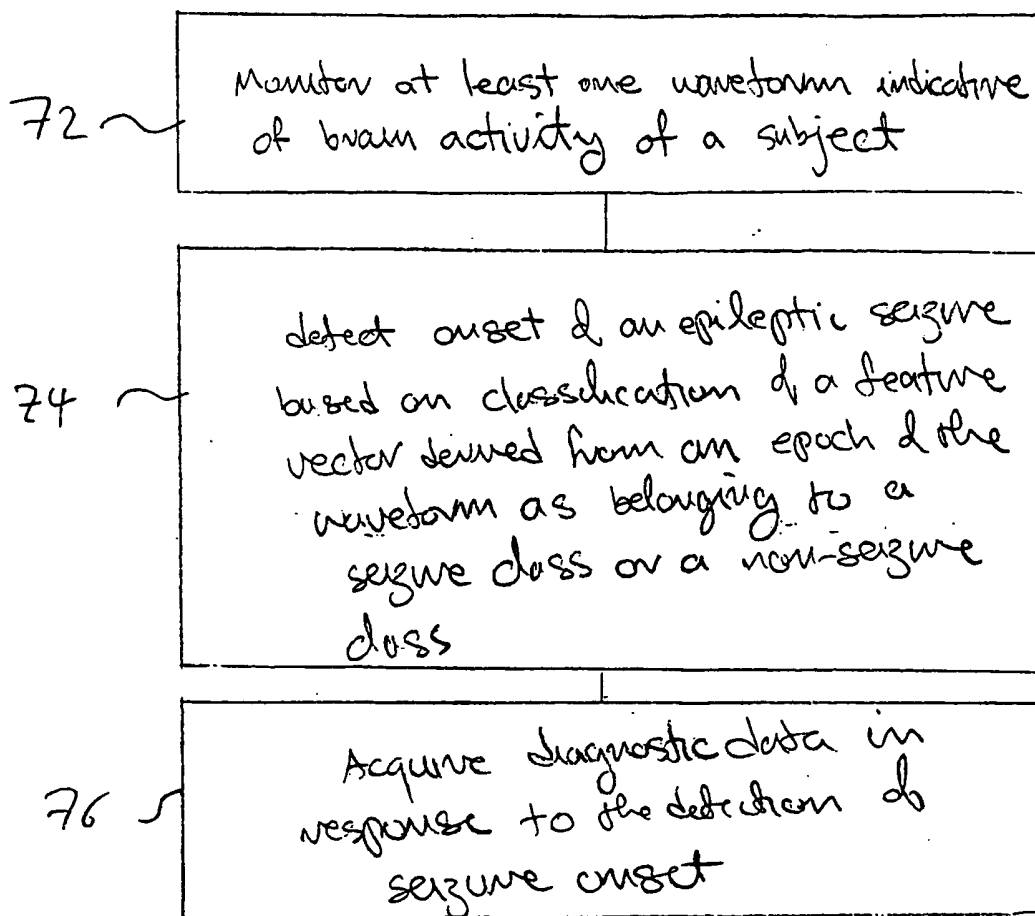 72
Monitor at least one waveform indicative
of brain activity of a subject
74
detect onset of an epileptic seizure
based on classification of a feature
vector derived from an epoch of the
waveform as belonging to a
seizure class or a non-seizure
class
76
Acquire diagnostic data in
response to the detection of
seizure onset